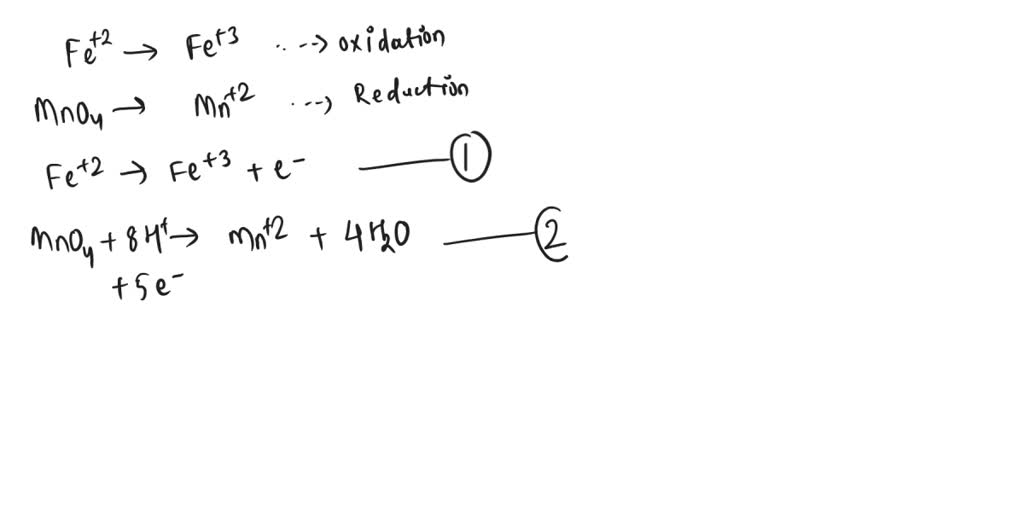 Fe⁺² → Fe⁺³ ...--> oxidation
MnO₄ → Mn⁺² ...--> Reduction
Fe⁺² → Fe⁺³ + e⁻ —— ①
MnO₄ + 8H⁺ → Mn⁺² + 4H₂O —— ②
+ 5e⁻